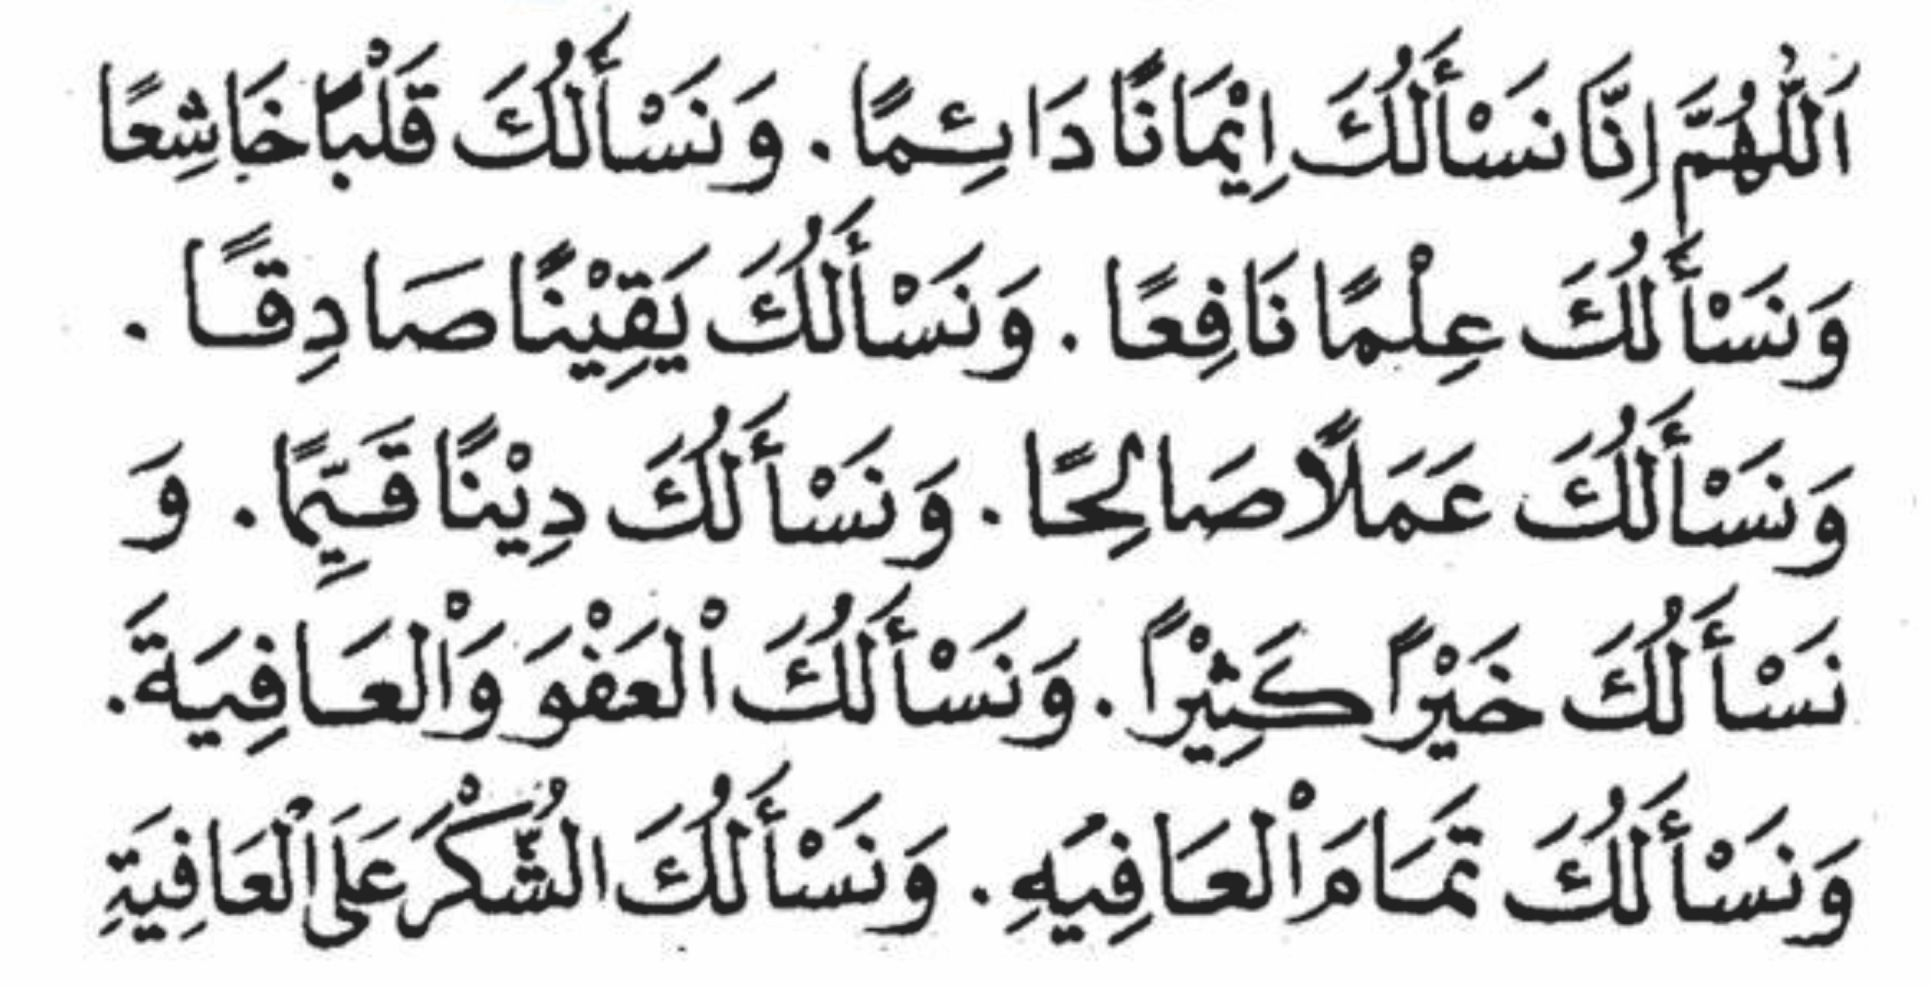 اَللّٰهُمَّ اِنَّا نَسْأَلُكَ اِيْمَانًا دَائِـمًا . وَنَسْأَلُكَ قَلْبًا خَاشِعًا
وَنَسْأَلُكَ عِلْمًا نَافِعًا . وَنَسْأَلُكَ يَقِيْنًا صَادِقًا .
وَنَسْأَلُكَ عَمَلًا صَالِحًا . وَنَسْأَلُكَ دِيْنًا قَـيِّمًا . وَ
نَسْأَلُكَ خَيْرًا كَثِيْرًا . وَنَسْأَلُكَ اْلعَفْوَ وَاْلعَافِيَةَ .
وَنَسْأَلُكَ تَمَامَ اْلعَافِيَهِ . وَنَسْأَلُكَ الشُّكْرَ عَلَى اْلعَافِيَةِ